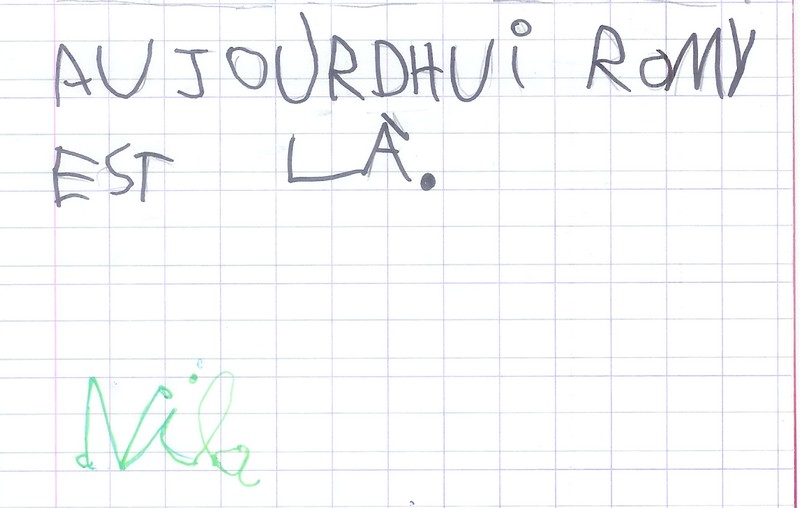 AUJOURDHUi ROMY
EST LÀ.
Nila